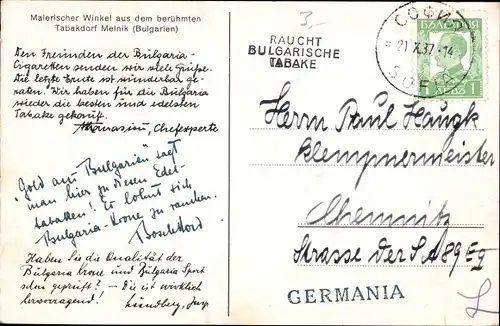 Malerischer Winkel aus dem berühmten
Tabakdorf Melnik (Bulgarien)
Den Freunden der Bulgaria-
Cigaretten senden wir viele Grüsse.
Die letzte Ernte ist wunderbar ge-
raten. Wir haben für die Bulgaria
wieder die besten und edelsten
Tabake gekauft.
Athanasiou, Chefexperte
"Gold aus Bulgarien" sagt
man hier zu diesen Edel-
tabaken! Es lohnt sich
Bulgaria-Krone zu rauchen.
Haben Sie die Qualität der
Bulgaria Krone und Bulgaria Sport
schon geprüft? – Die ist wirklich
hervorragend!
3.-
RAUCHT
BULGARISCHE
TABAKE
СОФИЯ
21.X.37.-14
SOFIA
БЪЛГАРИЯ
1 ЛЕВЪ 1
Herrn Paul Haugk
Klempnermeister
Chemnitz
Strasse der SA 89 Eg
GERMANIA